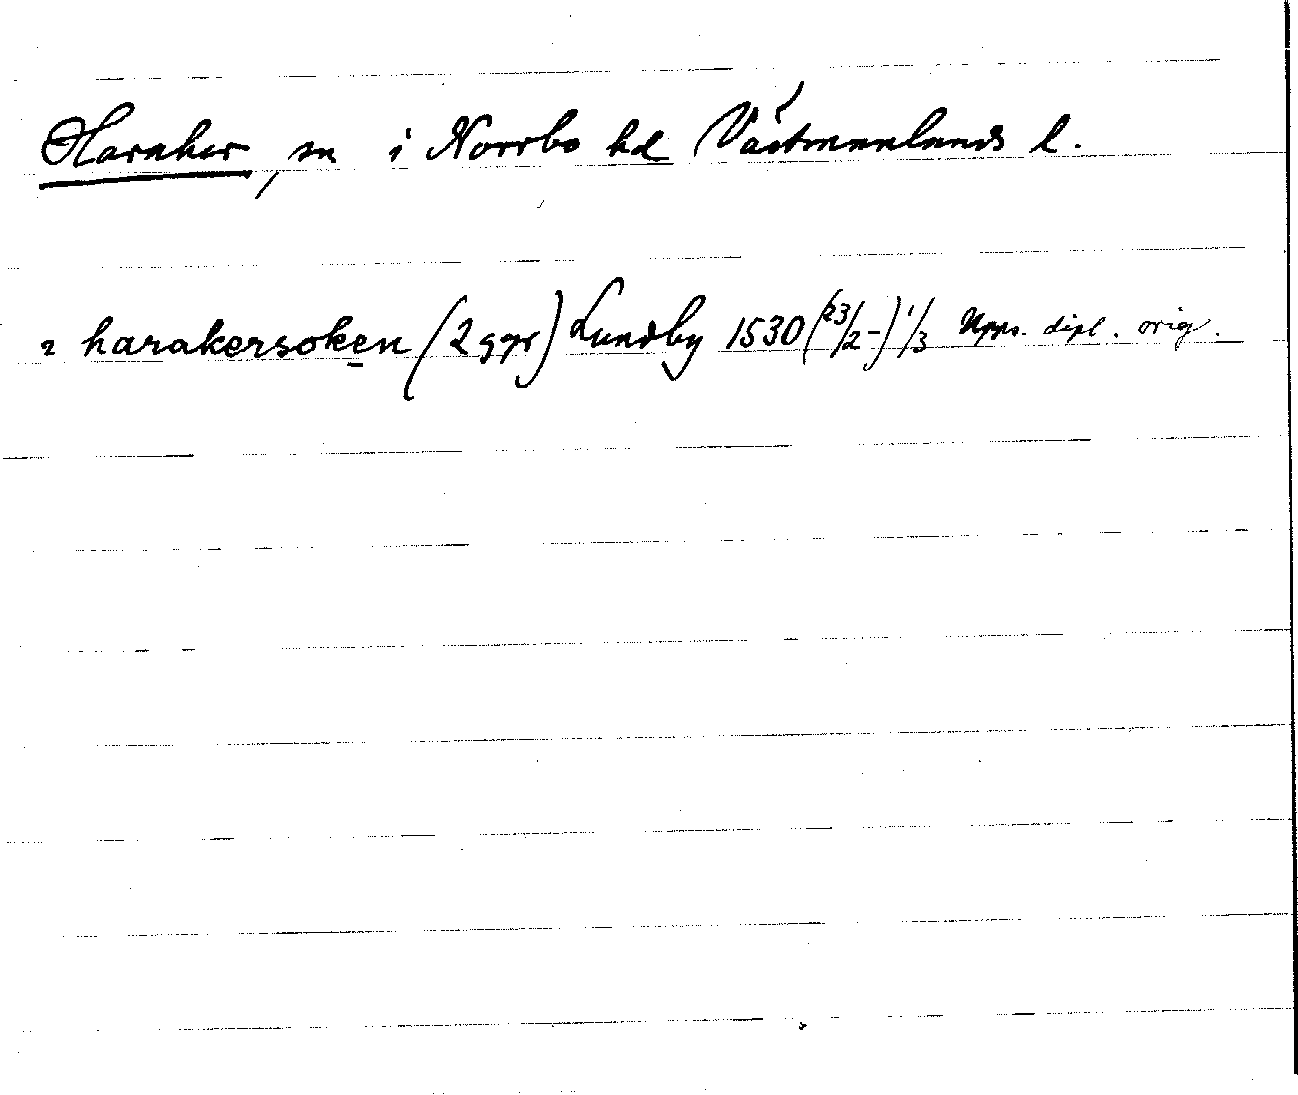 Haraker, sn i Norrbo hd Västmanlands l.
i harakersoken (2 ggr) Lundby 1530 (23/2-) 1/3 Upps. dipl. orig.